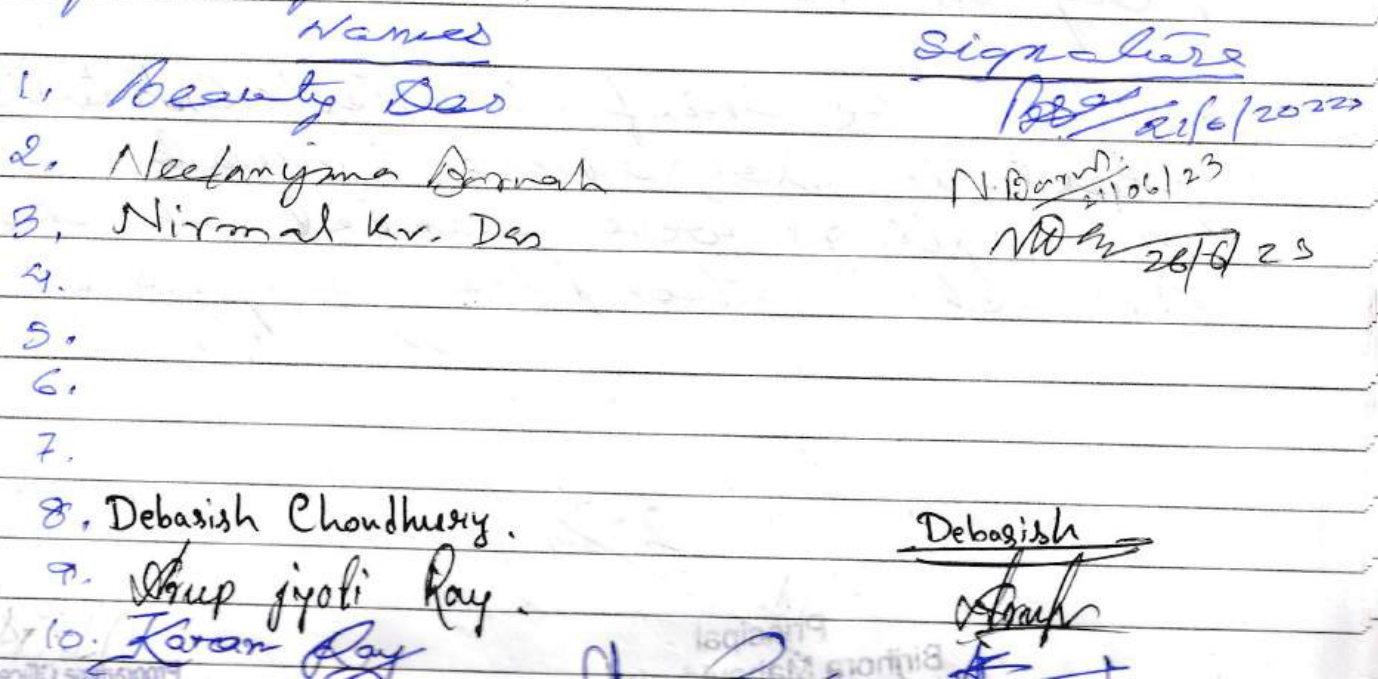 Names Signature
1. Beauty Das
2. Neelanjana Baruah N. Baruah 21/06/23
3. Nirmal Kr. Das 26/6/23
4.
5.
6.
7.
8. Debasish Choudhury. Debasish
9. Arup jyoti Ray. Arup
10. Karan Ray
Principal